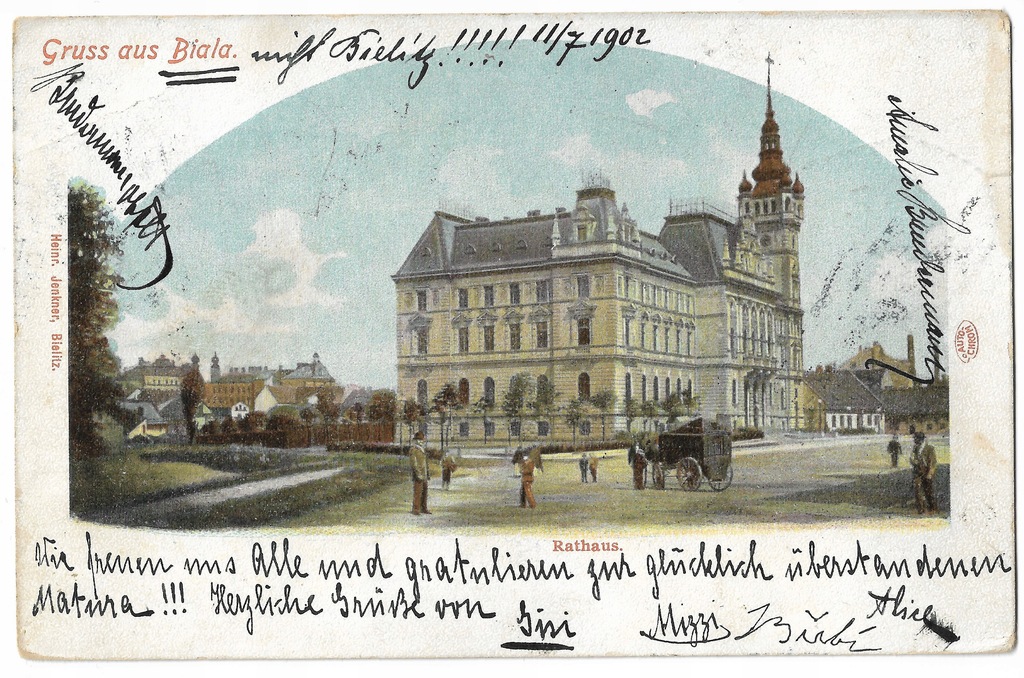 Gruss aus Biala. nicht Bielitz!!!!! 11/7 1902
Heinr. Jenkner, Bielitz.
Amalie
AUTO-CHROM
Rathaus.
Wir freuen uns Alle und gratulieren zur glücklich überstandenen
Matura!!! Herzliche Grüße von
Mizzi
Alice